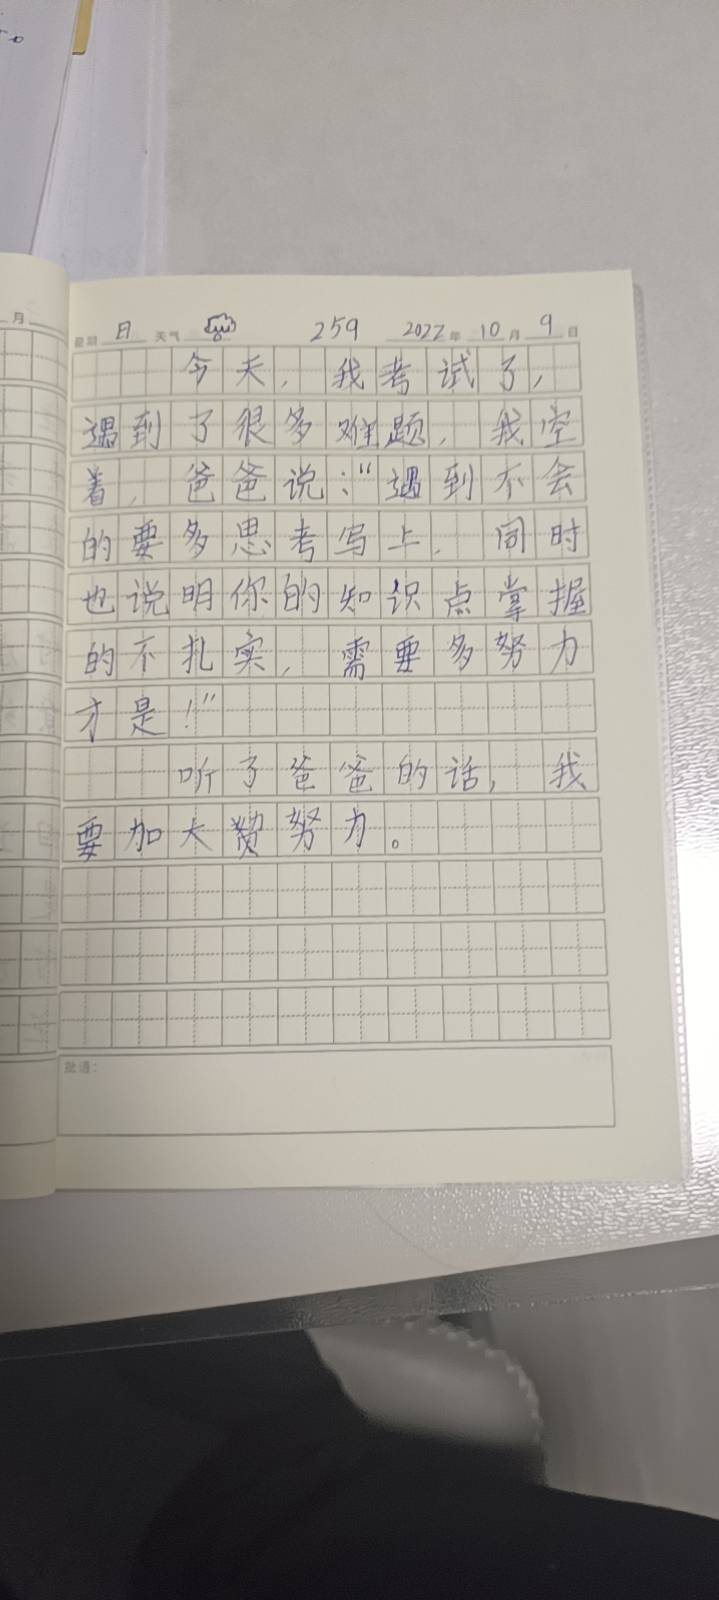 月
星期 日 天气 259 2022年 10月 9日
今天，我考试了，
遇到了很多难题，我空
着，爸爸说：“遇到不会
的要多思考写上，同时
也说明你的知识点掌握
的不扎实，需要多努力
才是！”
听了爸爸的话，我
要加大努力。
批语：